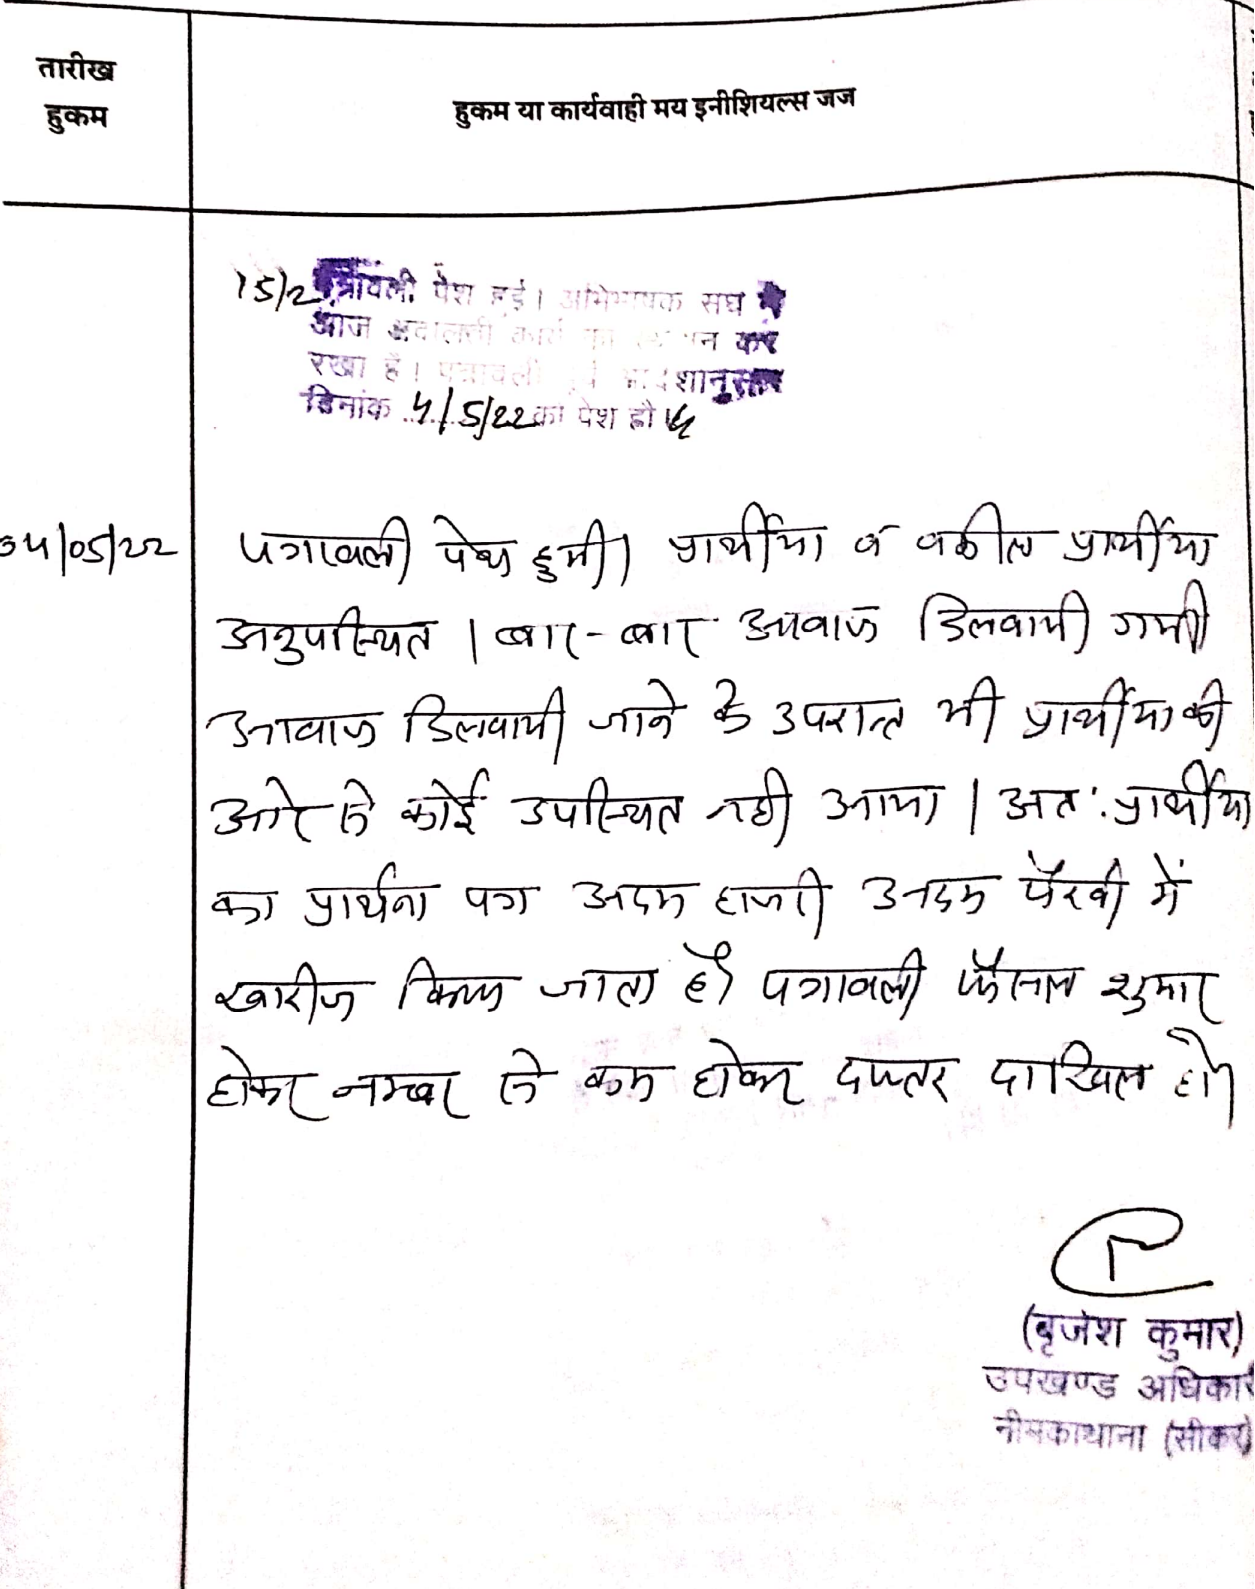 तारीख
हुकम
हुकम या कार्यवाही मय इनीशियल्स जज
15/2 पत्रावली पेश हुई। अभिभाषक संघ ने
आज अदालती कार्य का स्थगन कर
रखा है। पत्रावली पूर्व आदेशानुसार
दिनांक 4/5/22 को पेश हो
04/05/22
पत्रावली पेश हुयी। प्रार्थीया व वकील प्रार्थीया
अनुपस्थित। बार-बार आवाज दिलवायी गयी
आवाज दिलवायी जाने के उपरान्त भी प्रार्थीया की
ओर से कोई उपस्थित नही आया। अतः प्रार्थीया
का प्रार्थना पत्र अदम हाजरी अदम पैरवी में
खारीज किया जाता है। पत्रावली फैसल शुमार
होकर नम्बर से कम होकर दफ्तर दाखिल हो।
(बृजेश कुमार)
उपखण्ड अधिकारी
नीमकाथाना (सीकर)